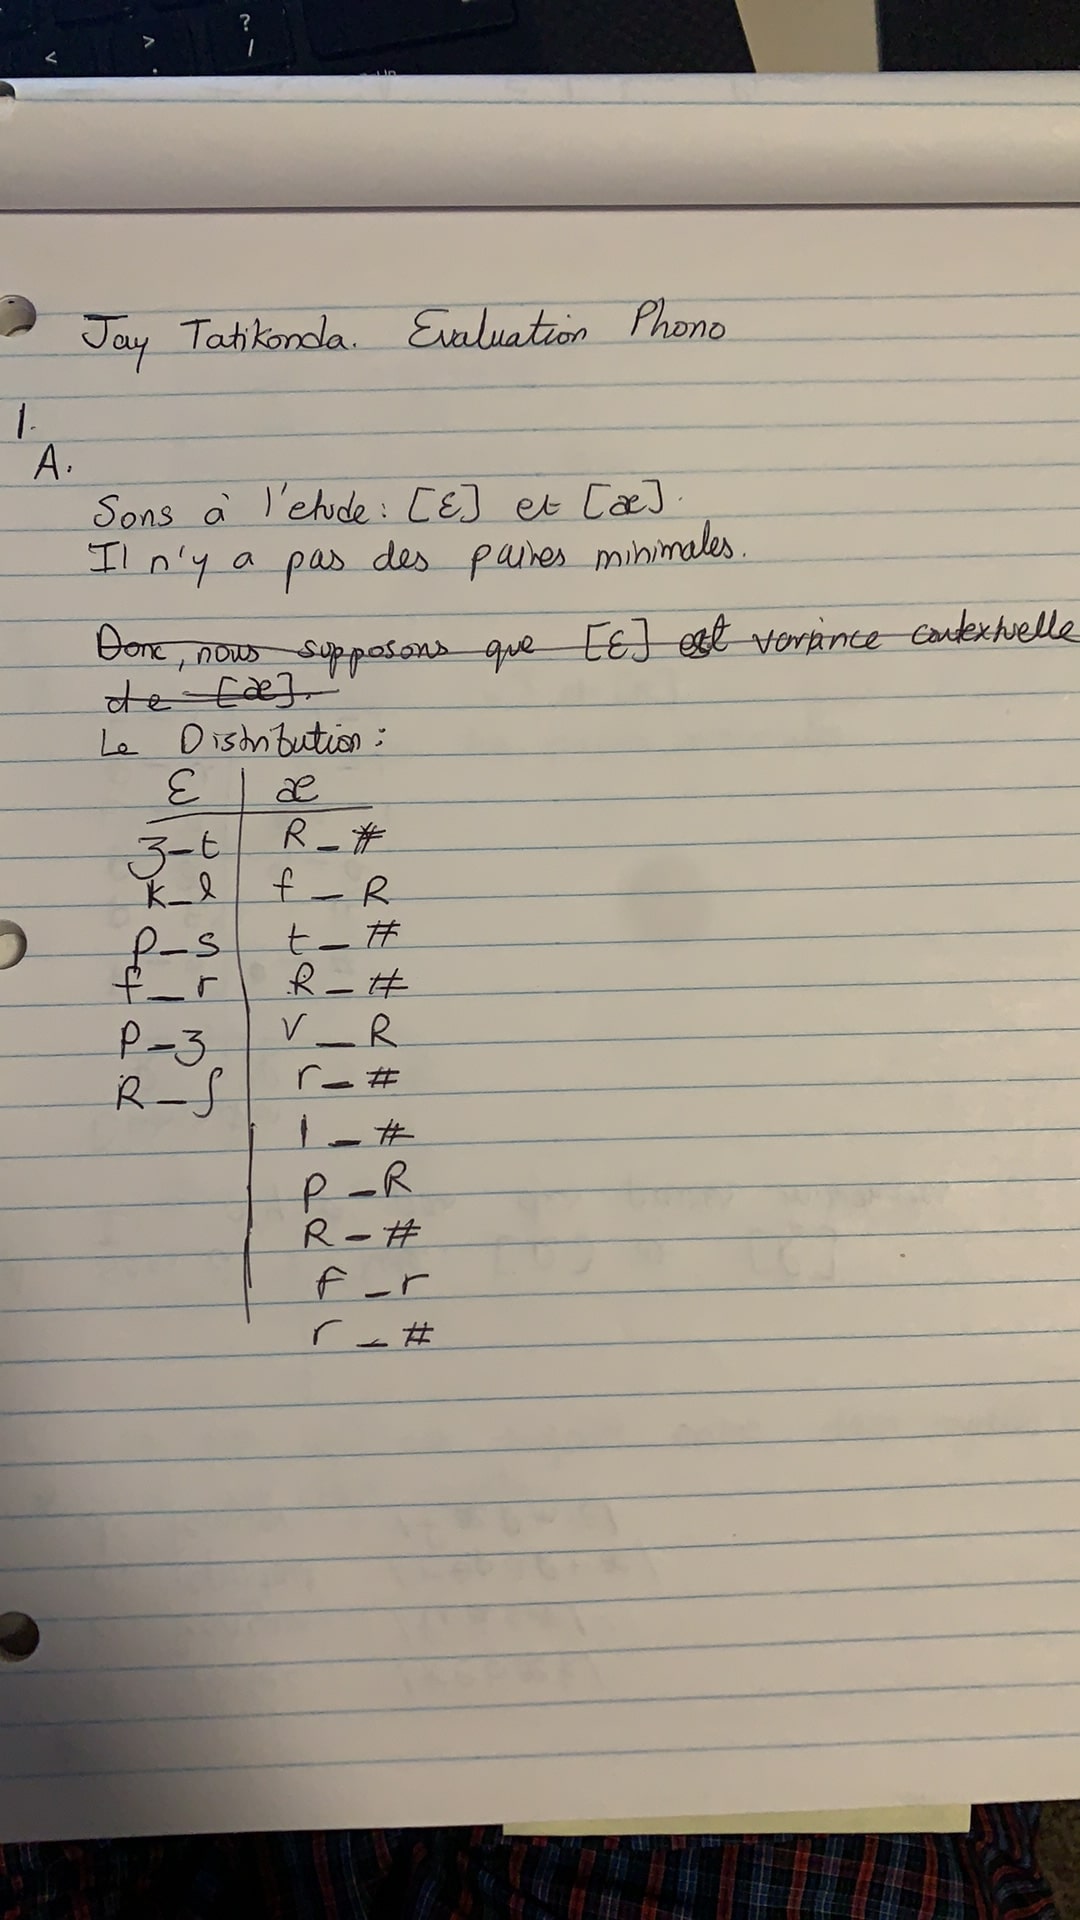 Jay Tatikonda. Evaluation Phono
1.
A.
Sons à l'etude: [Ɛ] et [æ].
Il n'y a pas des paires minimales.
Donc, nous supposons que [Ɛ] est variance contextuelle
de [æ].
Le Distribution:
Ɛ | æ
ʒ_t | R_#
k_l | f_R
p_s | t_#
f_r | R_#
P_ʒ | V_R
R_ʃ | r_#
l_#
p_R
R_#
f_r
r_#